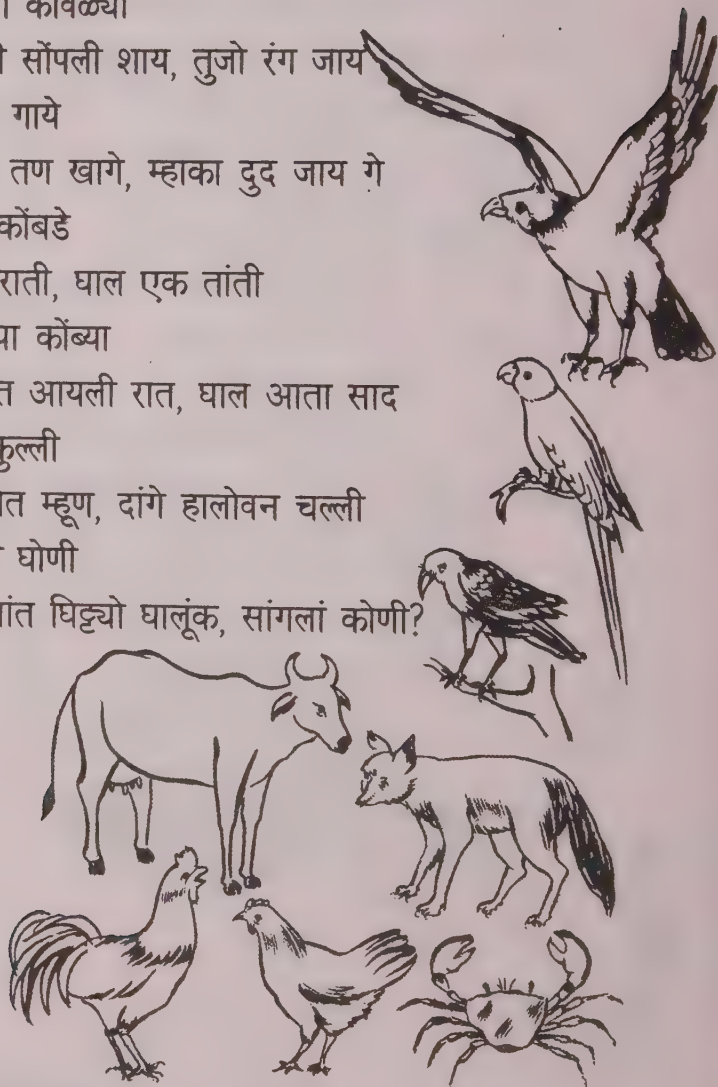 कावळ्या
सोंपली शाय, तुजो रंग जाय
गाये
तण खागे, म्हाका दुद जाय गे
कोंबडे
राती, घाल एक तांती
कोंब्या
आयली रात, घाल आता साद
कुल्ली
म्हूण, दांगे हालोवन चल्ली
घोणी
घिट्ट्यो घालूंक, सांगलां कोणी?